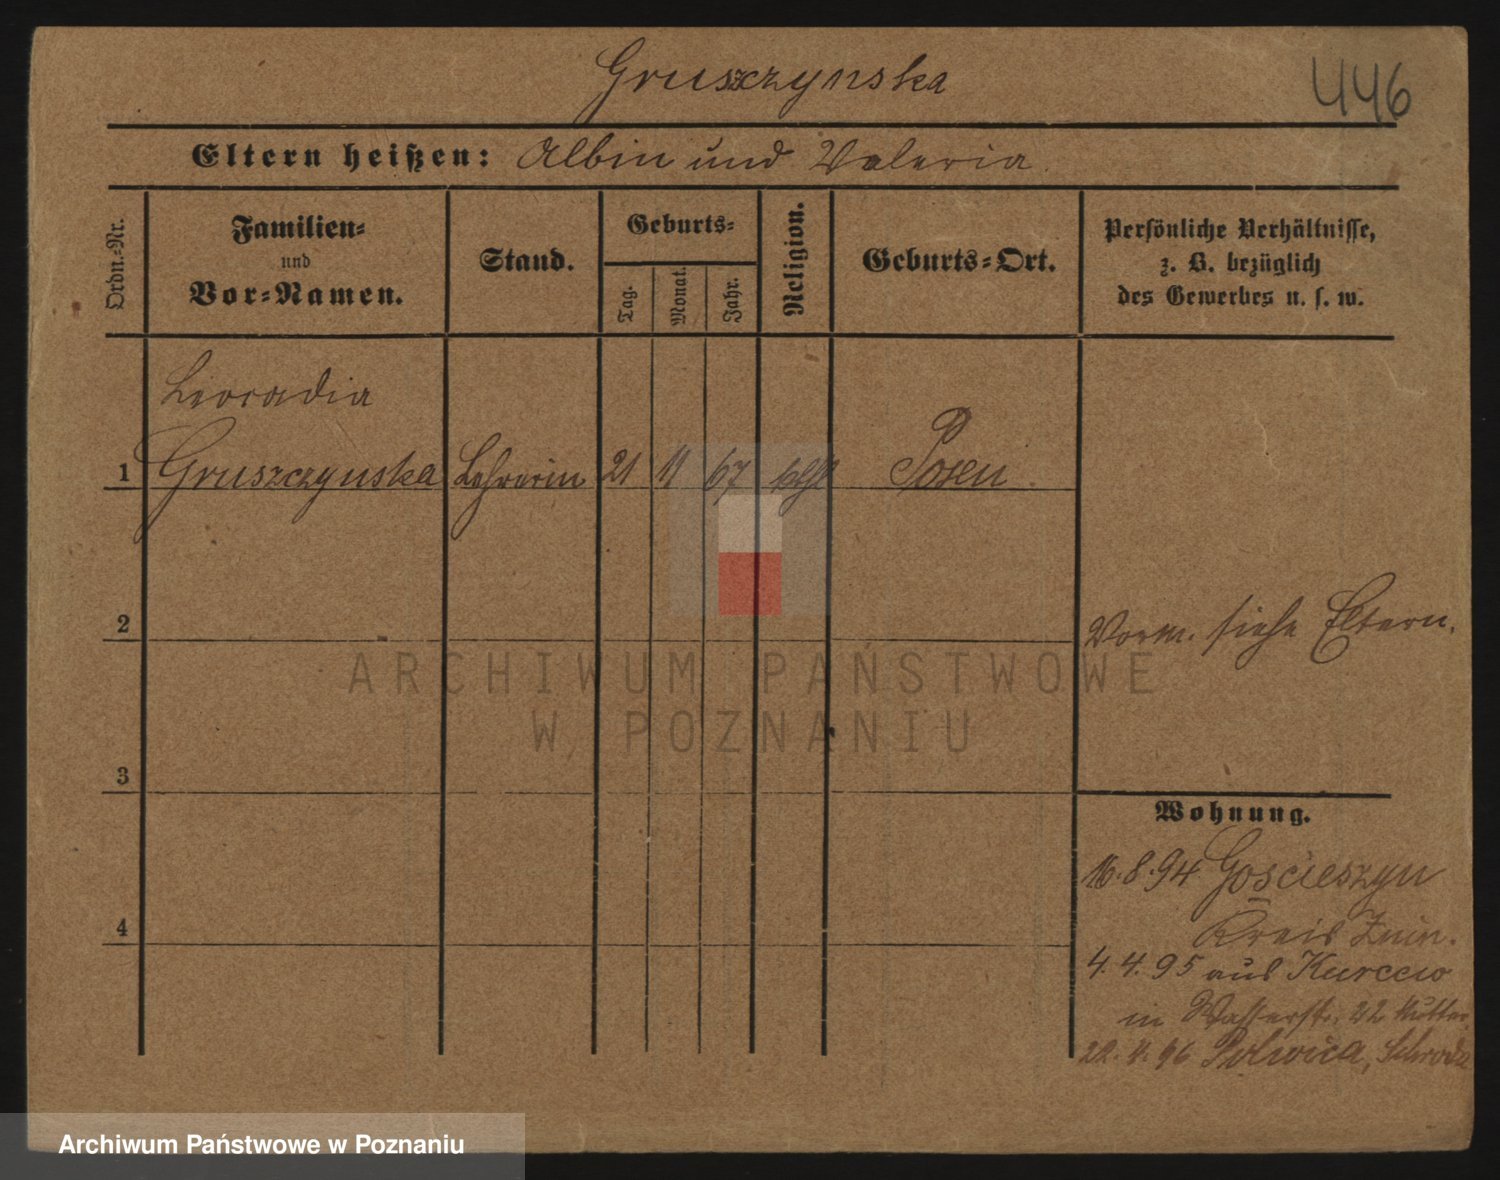 Gruszczynska
446
Eltern heißen: Albin und Valeria
Ordn.-Nr.
Familien-
und
Vor-Namen.
Stand.
Geburts-
Tag.
Monat.
Jahr.
Religion.
Geburts-Ort.
Persönliche Verhältnisse,
z. B. bezüglich
des Gewerbes u. s. w.
Leocadia
1 Gruszczynska Lehrerin 21 11 67 kath Posen
2
Vorm. siehe Eltern.
3
Wohnung.
16.8.94 Gościeszyn
4
Kreis Znin.
4.4.95 aus Kurcew
in Wasserstr. 22 Mutter
22. 4. 96 Polwica, Schroda
ARCHIWUM PAŃSTWOWE
W POZNANIU
Archiwum Państwowe w Poznaniu